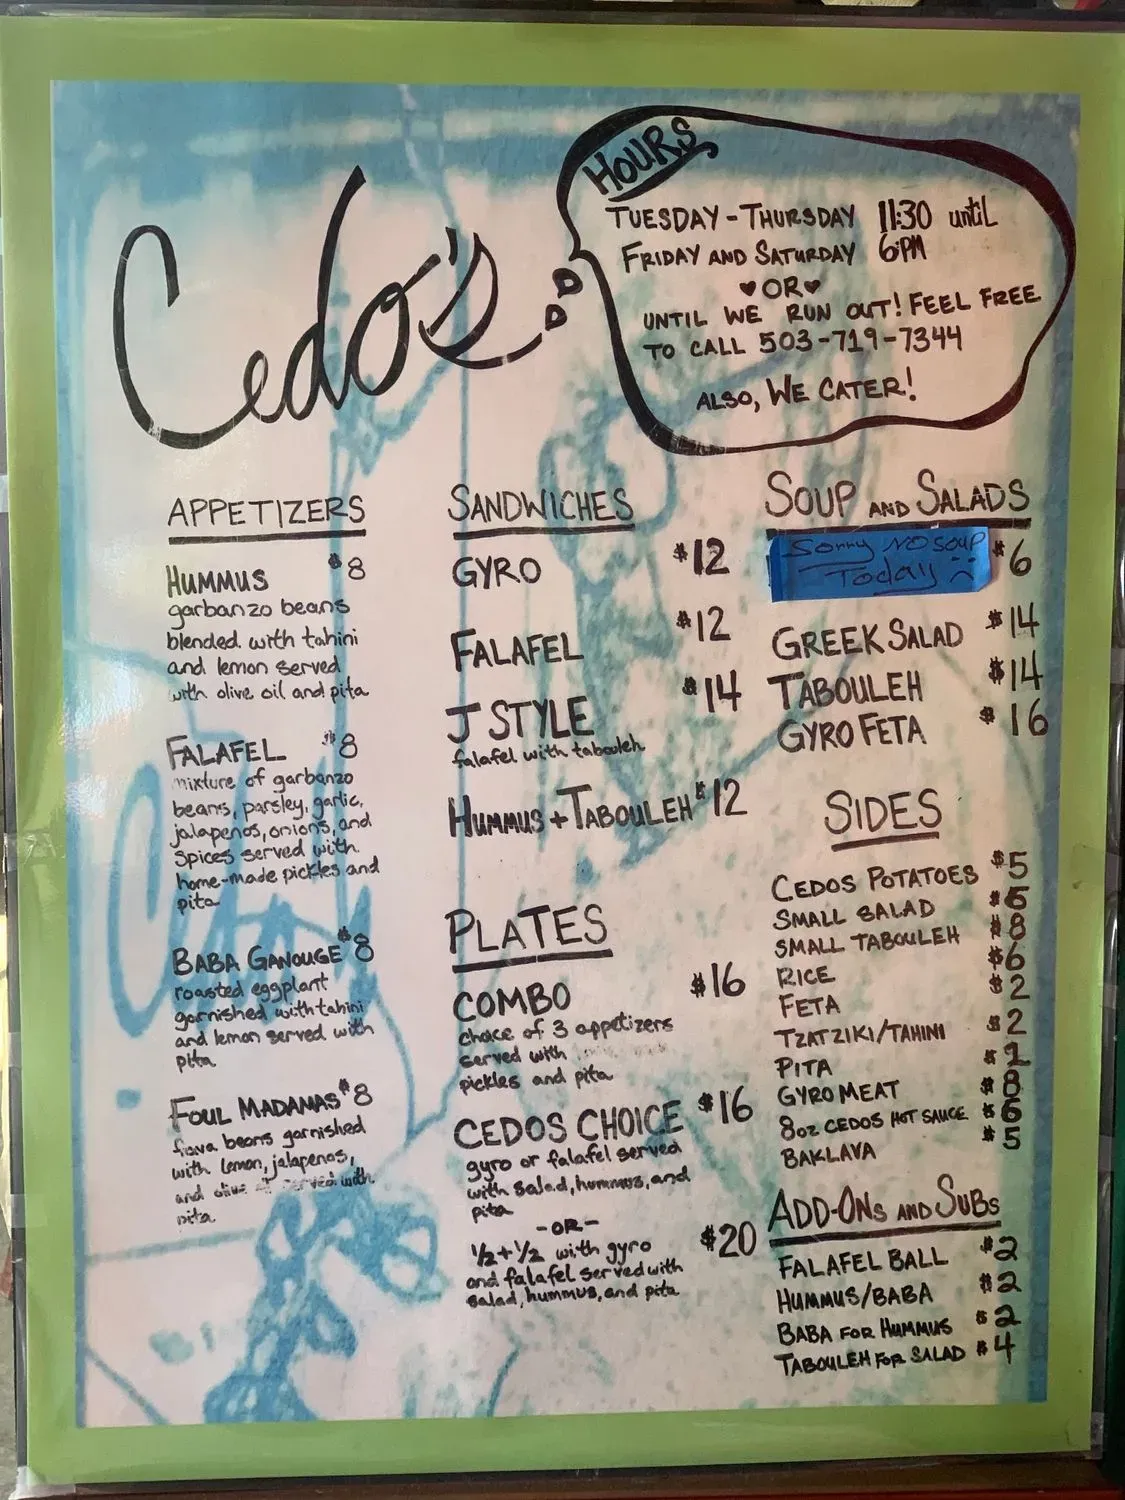 Cedo's
HOURS
TUESDAY - THURSDAY 11:30 until
FRIDAY AND SATURDAY 6PM
♥OR♥
UNTIL WE RUN OUT! FEEL FREE
TO CALL 503-719-7344
ALSO, WE CATER!
APPETIZERS
HUMMUS $8
garbanzo beans
blended with tahini
and lemon served
with olive oil and pita
FALAFEL $8
mixture of garbanzo
beans, parsley, garlic,
jalapenos, onions, and
spices served with
home-made pickles and
pita
BABA GANOUGE $8
roasted eggplant
garnished with tahini
and lemon served with
pita
FOUL MADAMAS $8
fava beans garnished
with lemon, jalapenos,
and olive served with
pita
SANDWICHES
GYRO $12
FALAFEL $12
J STYLE $14
falafel with tabouleh
HUMMUS + TABOULEH $12
PLATES
COMBO $16
choice of 3 appetizers
served with
pickles and pita
CEDOS CHOICE $16
gyro or falafel served
with salad, hummus, and
pita
-OR-
1/2 + 1/2 with gyro $20
and falafel served with
salad, hummus, and pita
SOUP AND SALADS
Sorry NO SOUP $6
Today
GREEK SALAD $14
TABOULEH $14
GYRO FETA $16
SIDES
CEDOS POTATOES $5
SMALL SALAD $6
SMALL TABOULEH $8
RICE $6
FETA $2
TZATZIKI/TAHINI $2
PITA $1
GYRO MEAT $8
8oz CEDOS HOT SAUCE $6
BAKLAVA $5
ADD-ONS AND SUBS
FALAFEL BALL $2
HUMMUS/BABA $2
BABA FOR HUMMUS $2
TABOULEH FOR SALAD $4